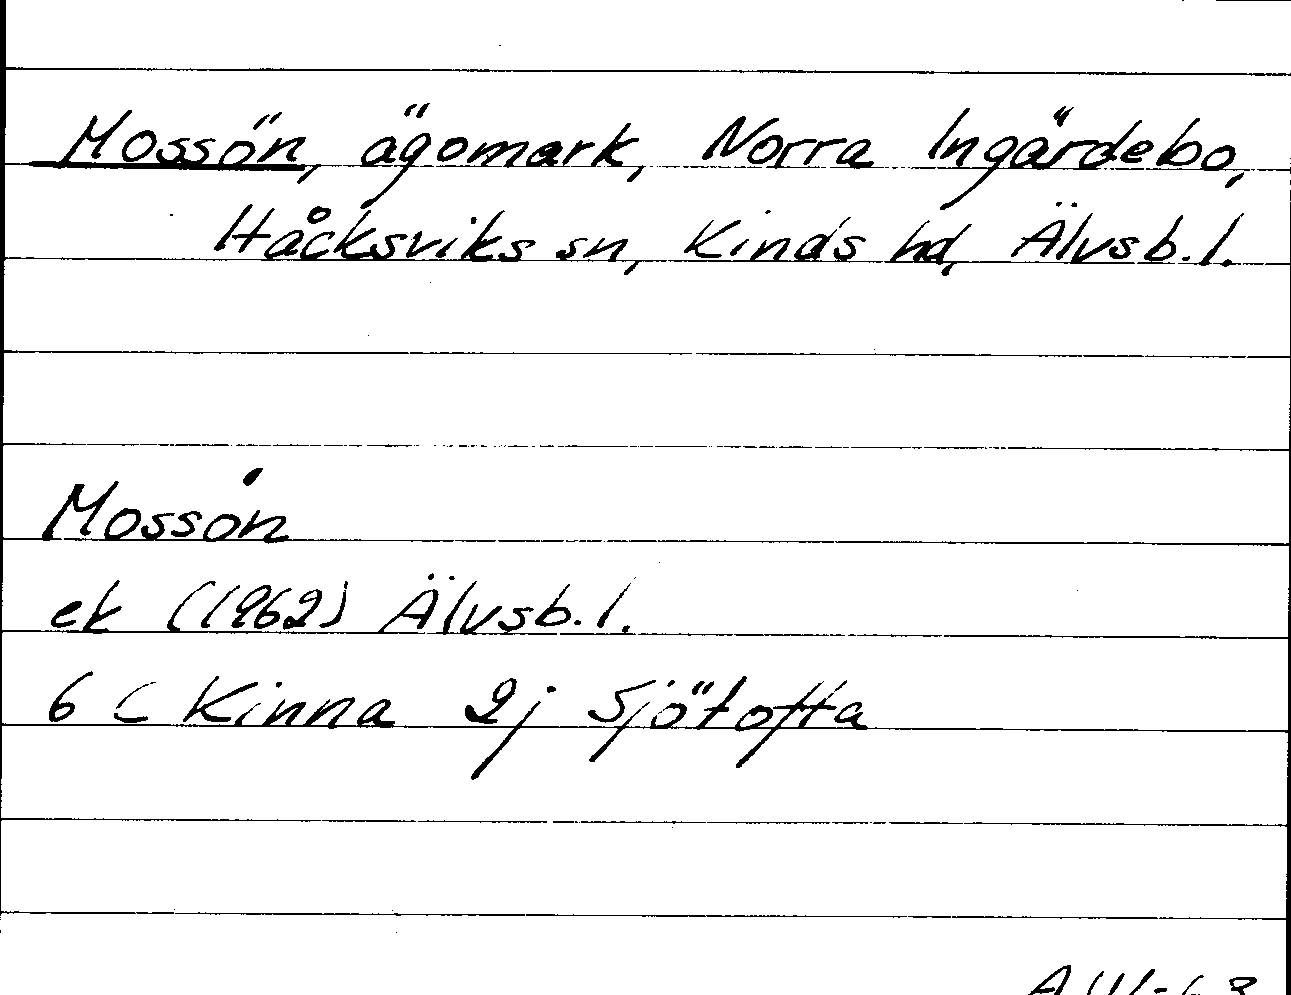 Mossön, ägomark, Norra Ingärdebo,
Håcksviks sn, Kinds hd, Älvsb.l.
Mossön
ek (1962) Älvsb.l.
6 C Kinna 2j Sjötofta